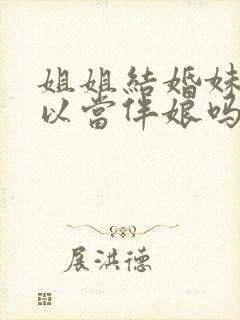 姐姐結婚妹
以當伴娘嗎
展洪德